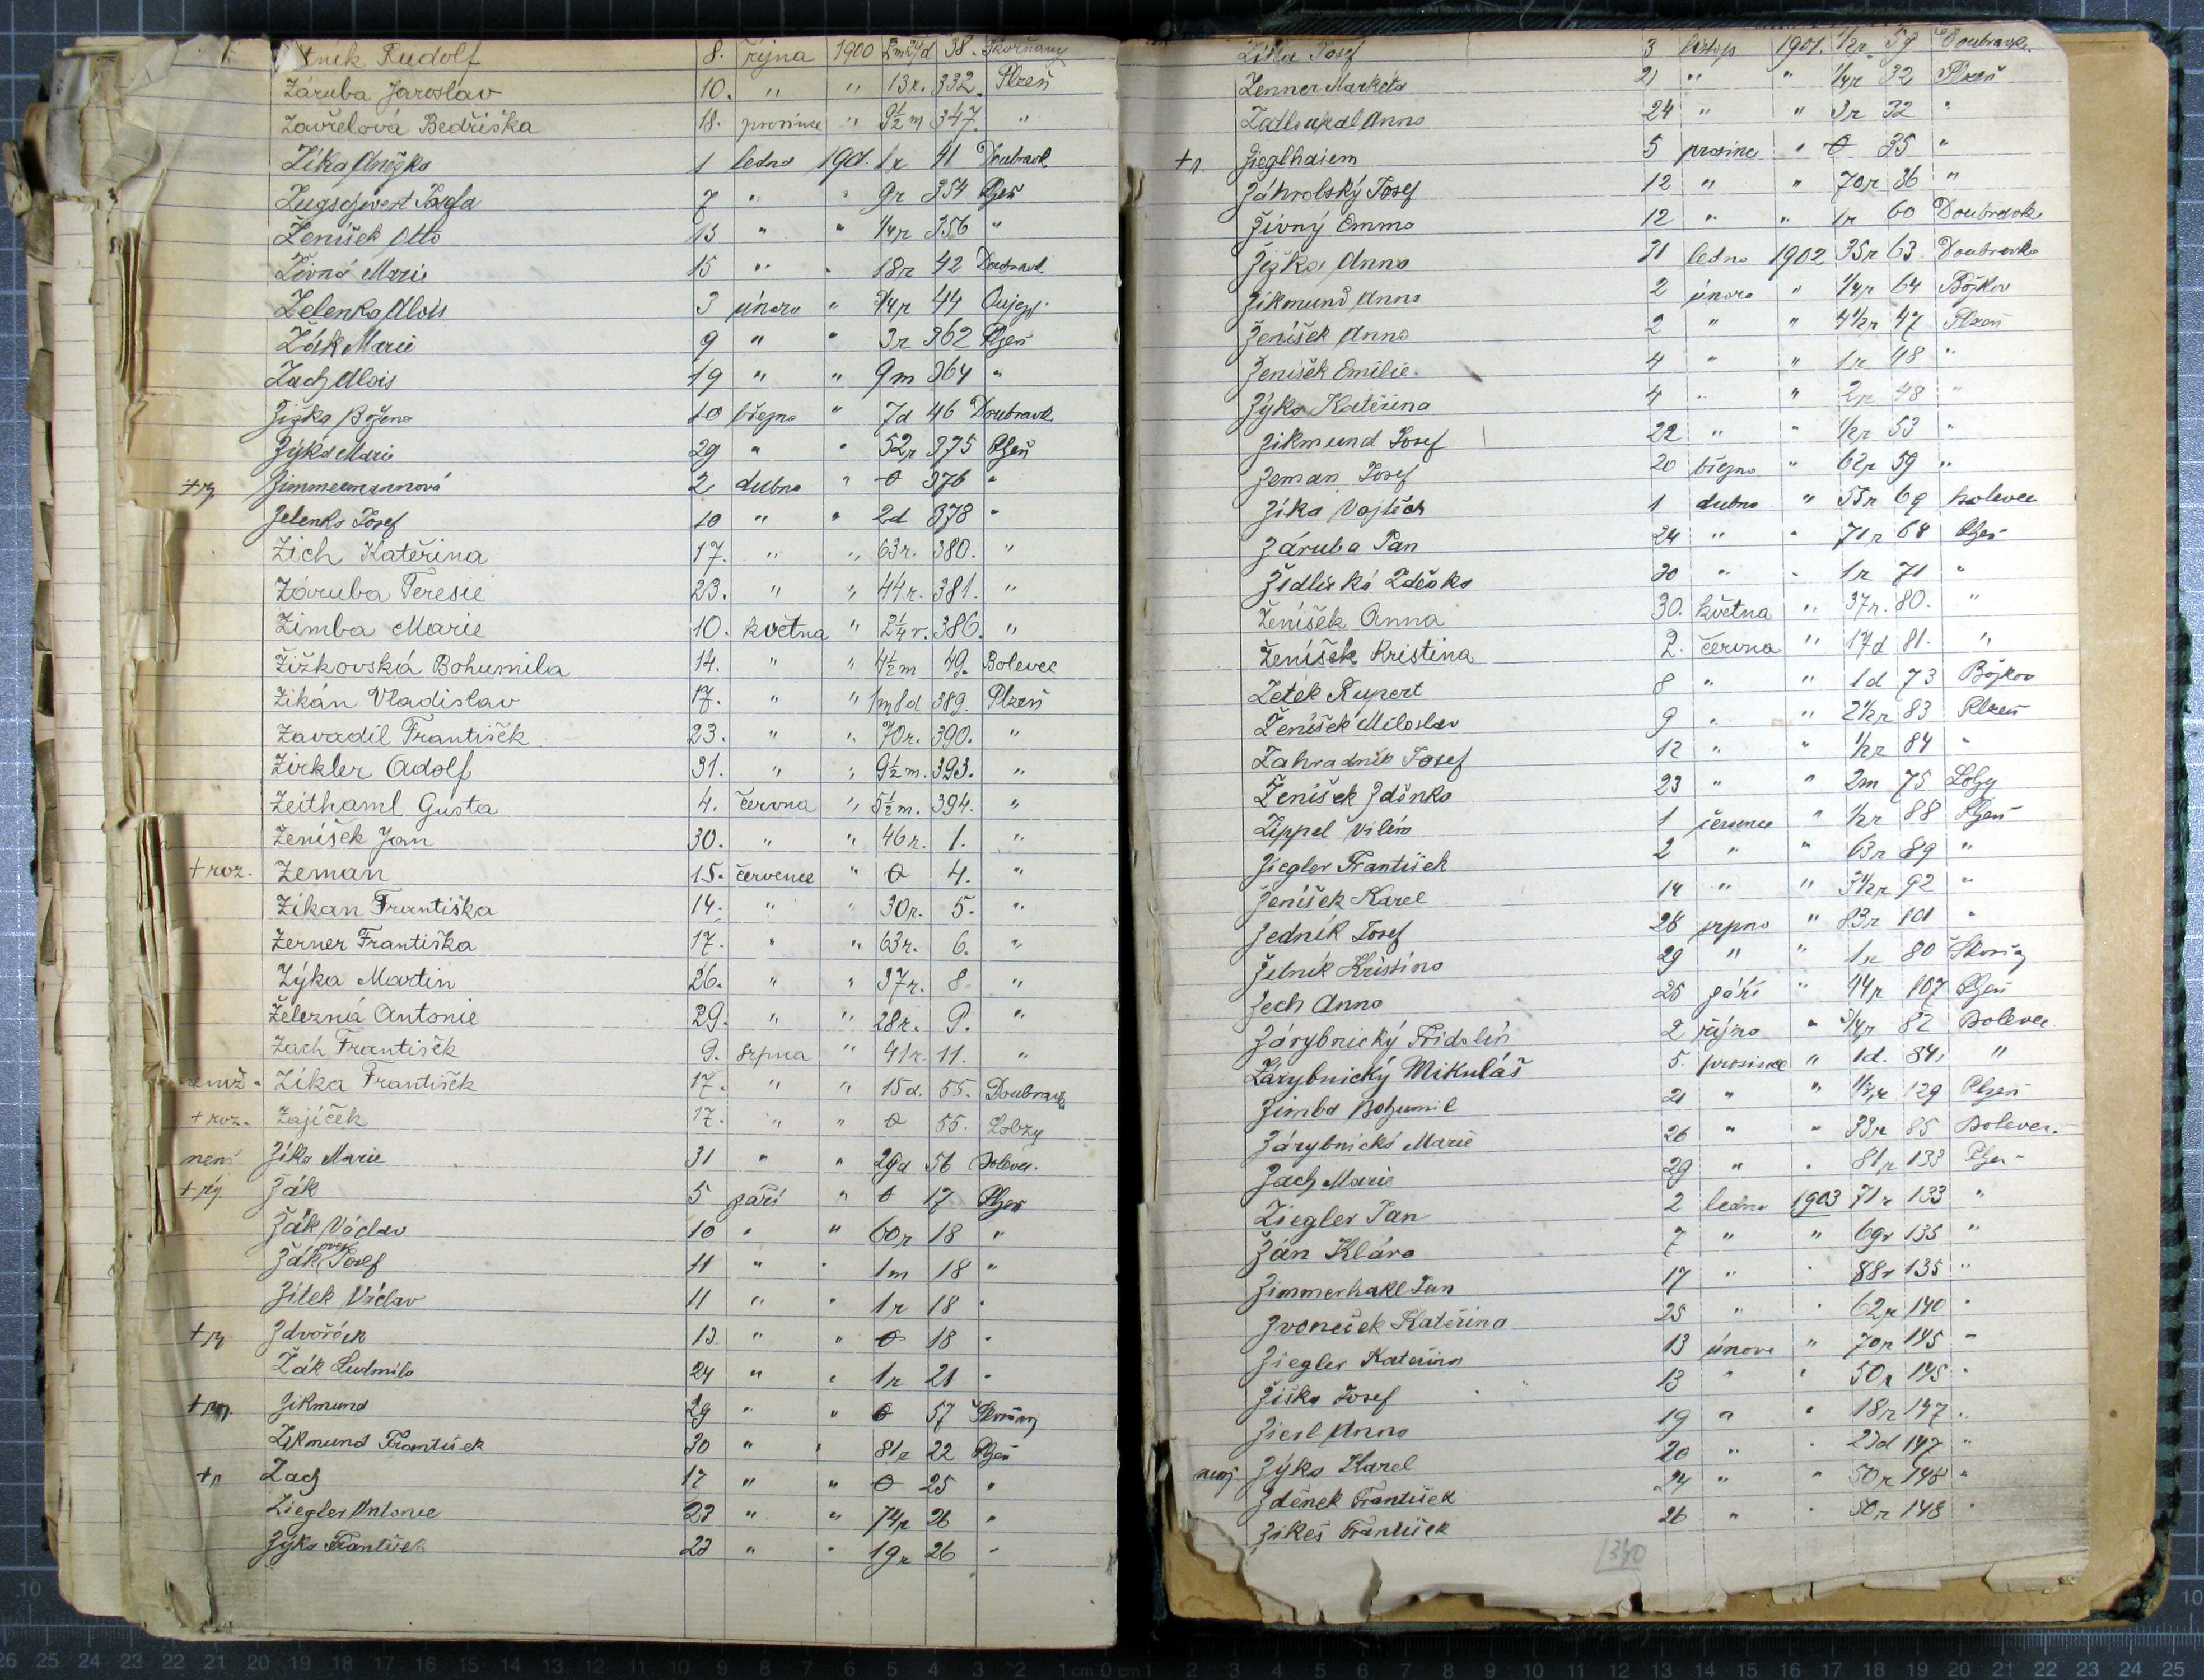 Rudolf 8. října 1900 38. Skorňany
Záruba Jaroslav 10. " " 13r. 332. Plzeň
Zavřelová Bedřiška 18. prosince " 9½m 347. "
Zíka Anežka 1 ledna 190. 1r 41 Doubravk
Josefa 7 " " 9r 354 Plzeň
Ženíšek Otto 13 " " ¼r 356 "
Živná Marie 15 " " 18r 42 Doubravk
Zelenka Alois 3 února " ¾r 44
Žák Marie 9 " " 3r 362 Plzeň
Zach Alois 19 " " 9m 364 "
Žižka Božena 10 března " 7d 46 Doubravk
Zýka Marie 29 " " 52r 375 Plzeň
Zimmermannová 2 dubna " 0 376 "
Zelenka Josef 10 " " 2d 378 "
Zich Kateřina 17. " " 63r. 380. "
Záruba Teresie 23. " " 44r. 381. "
Zimba Marie 10. května " 2¼r. 386. "
Žižkovská Bohumila 14. " " 4½m 49. Bolevec
Zikán Vladislav 17. " " 1m8d 389. Plzeň
Zavadil František 23. " " 70r. 390. "
Zirkler Adolf 31. " " 9½m. 393. "
Zeithaml Gusta 4. června " 5½m. 394. "
Ženíšek Jan 30. " " 46r. 1. "
+ roz. Zeman 15. července " 0 4. "
Zikan Františka 14. " " 30r. 5. "
Zerner Františka 17. " " 63r. 6. "
Zýka Martin 26. " " 37r. 8 "
Železná Antonie 29. " " 28r. 9. "
Zach František 9. srpna " 41r. 11. "
Zíka František 17. " " 15d. 55. Doubravk
+ roz. Zajíček 17. " " 0 55. Lobzy
není Zíka Marie 31 " " 29d 56 Bolevec
Žák 5 září " 0 17 Plzeň
Žák Václav 10 " " 60r 18 "
Žák Josef 11 " " 1m 18 "
Zítek Václav 11 " " 1r 18 "
Zdvořáck 13 " " 0 18 "
Žák Ludmila 24 " " 1r 21 "
Zikmund 29 " " 0 57
Zikmund František 30 " " 81r 22 Plzeň
Zach 17 " " 0 25 "
Ziegler Antonie 23 " " 74r 26 "
Zýka František 23 " " 19r 26 "
Zíka Josef 3 listop 1901 ½r 59 Doubravk.
Zenner Marketa 21 " " ¼r 32 Plzeň
Zatloukal Anna 24 " " 3r 32 "
Zieglhaiem 5 prosince " 0 35 "
Záhrobský Josef 12 " " 70r 36 "
Živný Emma 12 " " 1r 60 Doubravk
Žižka Anna 21 ledna 1902 35r 63 Doubravka
Zikmund Anna 2 února " ¼r 64 Božkov
Ženíšek Anna 2 " " 4½r 47 Plzeň
Ženíšek Emilie 4 " " 1r 48 "
Zýka Kateřina 4 " " 2r 48 "
Zikmund Josef 22 " " ½r 53 "
Zeman Josef 20 března " 62r 59 "
Zíka Vojtěch 1 dubna " 55r 69 Bolevec
Záruba Jan 24 " " 71r 68 Plzeň
Židlická Zdeňka 30 " " 1r 71 "
Ženíšek Anna 30. května " 37r. 80. "
Ženíšek Kristina 2. června " 17d 81. "
Zetek Rupert 8 " " 1d 73 Božkov
Ženíšek Miloslav 9 " " 2½r 83 Plzeň
Zahradník Josef 12 " " ½r 84 "
Ženíšek Zdeňka 23 " " 2m 75 Lobzy
Zippel Vilém 1 července " ½r 88 Plzeň
Ziegler František 2 " " 63r 89 "
Ženíšek Karel 14 " " 3½r 92 "
Zedník Josef 26 srpna " 83r 101 "
Kristina 29 " " 1r 80
Zech Anna 25 září " 14r 107 Plzeň
Zárybnický Fridolín 2 října " ¾r 82 Bolevec
Zárybnický Mikuláš 5. prosince " 1d. 84. "
Zimba Bohumil 21 " " 129 Plzeň
Zárybnická Marie 26 " " 33r 85 Bolevec.
Zach Marie 29 " " 81r 133 Plzeň
Ziegler Jan 2 ledna 1903 71r 133 "
Žán Klára 7 " " 69r 135 "
Zimmerhakl Jan 17 " " 88r 135 "
Zvoneček Kateřina 25 " " 62r 140 "
Ziegler Kateřina 13 února " 70r 145 "
Žiška Josef 13 " " 50r 145 "
Ziesl Anna 19 " " 18r 147 "
Zýka Karel 20 " " 23d 147 "
Zdeněk František 24 " " 50r 148 "
Zikeš František 26 " " 50r 148 "